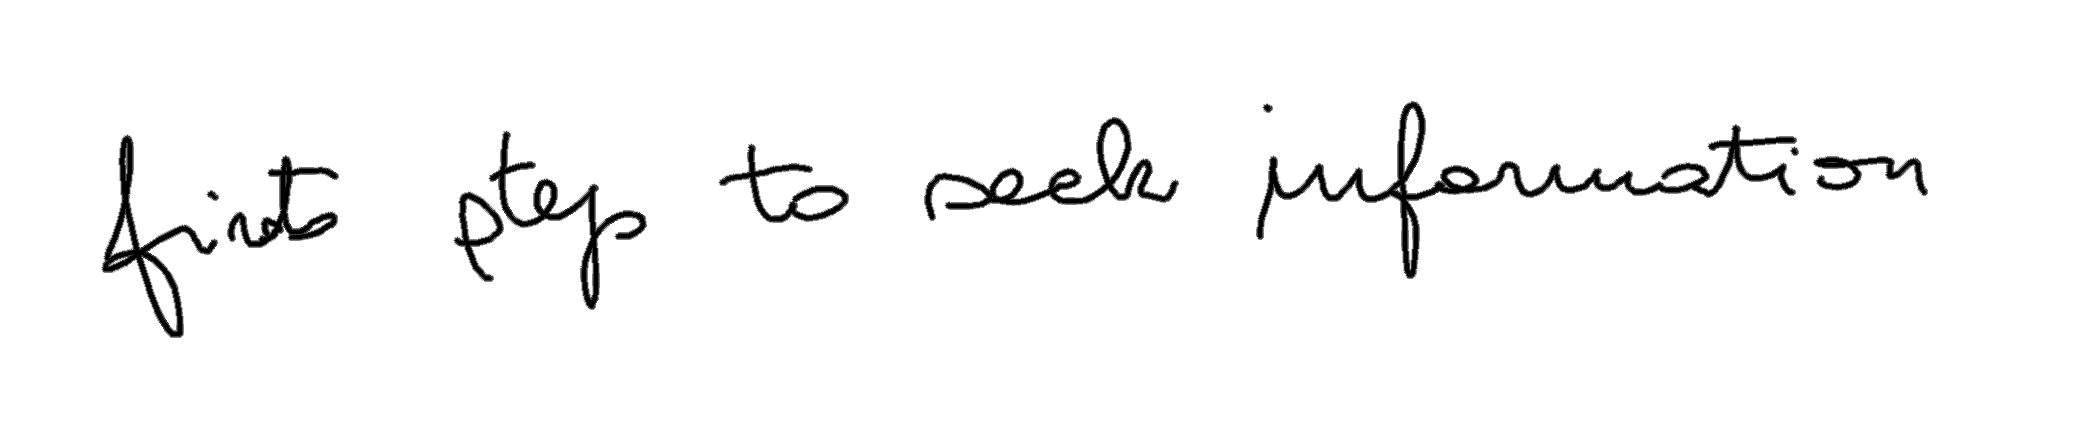 first step to seek information